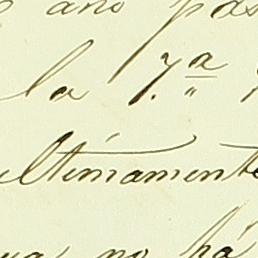 año pas
la 7.ª
ultimamente
no há